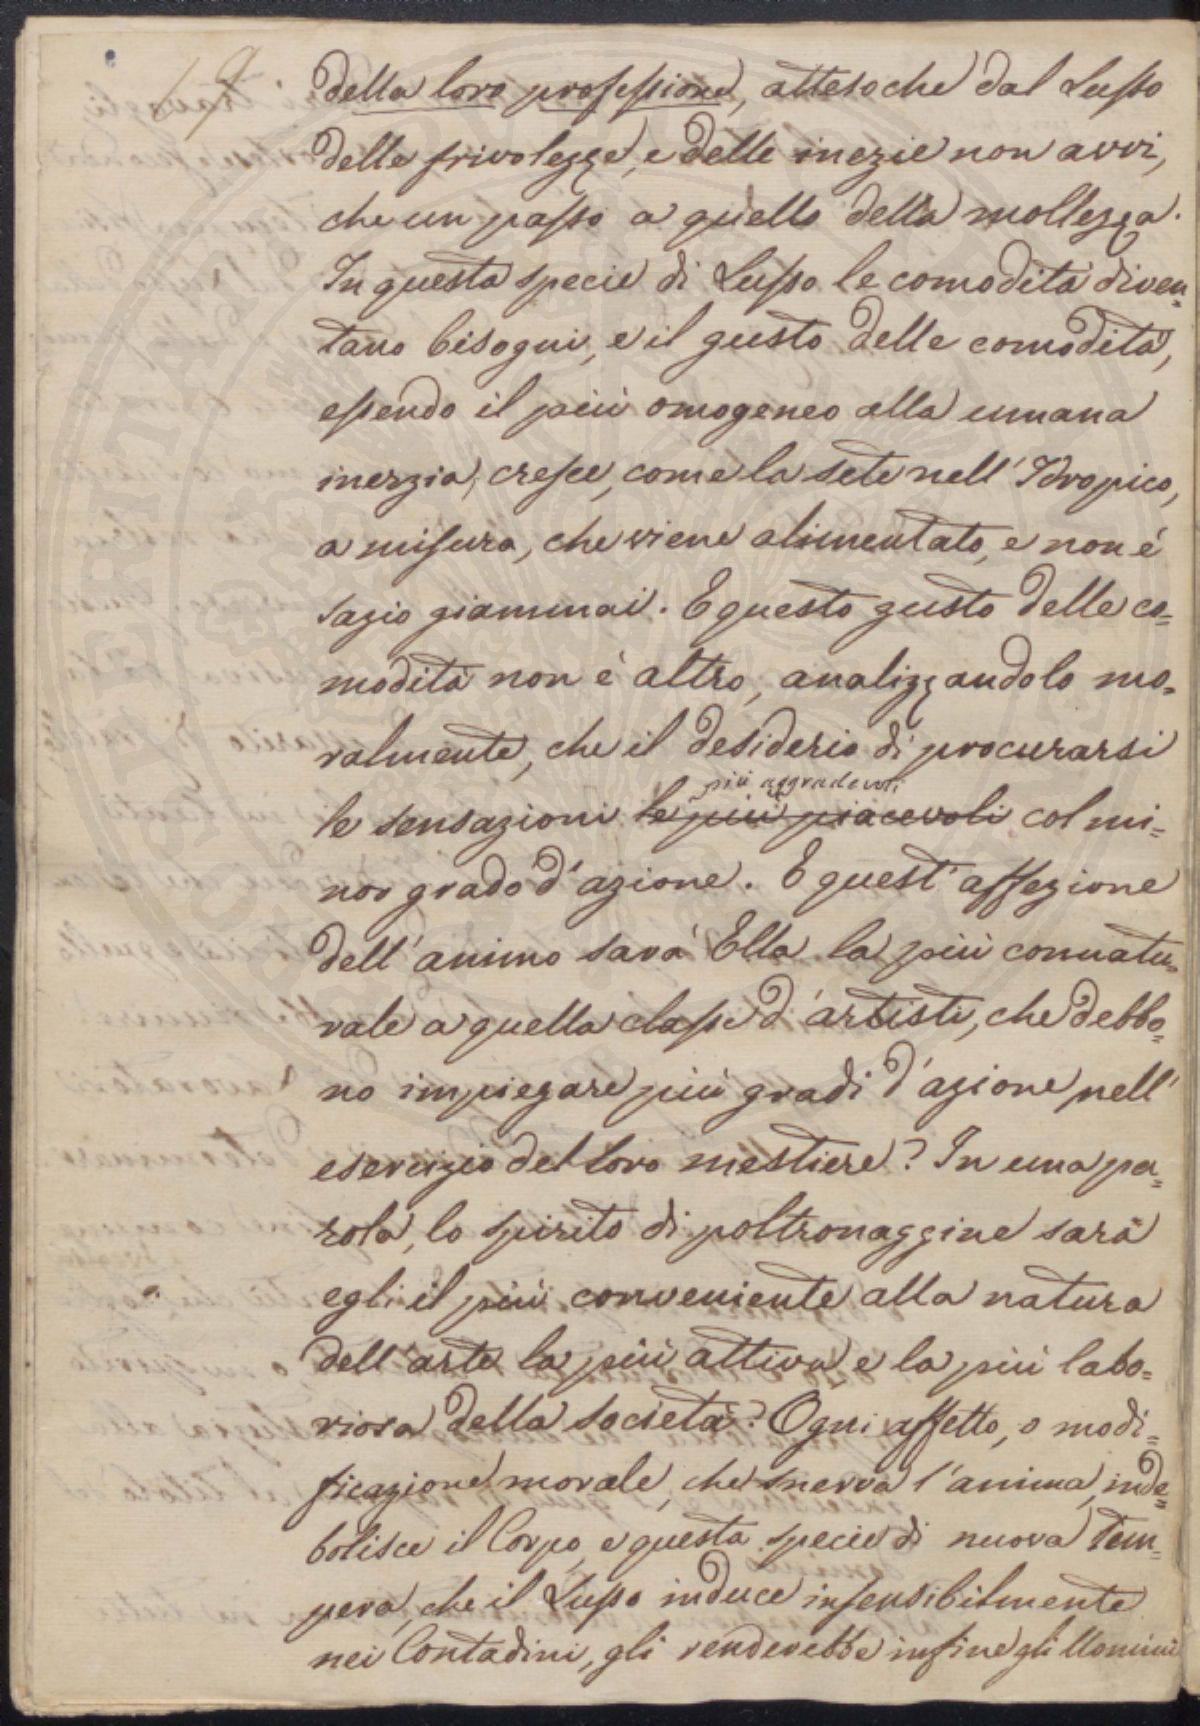 della loro professione, attesoche dal Lusso
delle frivolezze, e delle inezie non avvi,
che un passo a quello della mollezza.
In questa specie di Lusso le comodità diven=
tano bisogni, e il gusto delle comodità,
essendo il più omogeneo alla umana
inerzia, cresce, come la sete nell' Idropico,
a misura, che viene alimentato, e non è
sazio giammai. E questo gusto delle co=
modità non è altro, analizzandolo mo=
ralmente, che il desiderio di procurarsi
più aggradevoli
le sensazioni le più piacevoli col mi=
nor grado d'azione. E quest' affezione
dell' animo sarà Ella la più connatu=
rale a quella classe d'artisti, che debbo=
no impiegare più gradi d'azione nell'
esercizio del loro mestiere? In una pa=
rola, lo spirito di poltronaggine sarà
egli il più conveniente alla natura
dell' arte la più attiva e la più labo=
riosa della società? Ogni affetto, o modi=
ficazione morale, che snerva l'anima, inde=
bolisce il Corpo, e questa specie di nuova tem=
pera, che il Lusso induce insensibilmente
nei Contadini, gli renderebbe infine gli Uomini